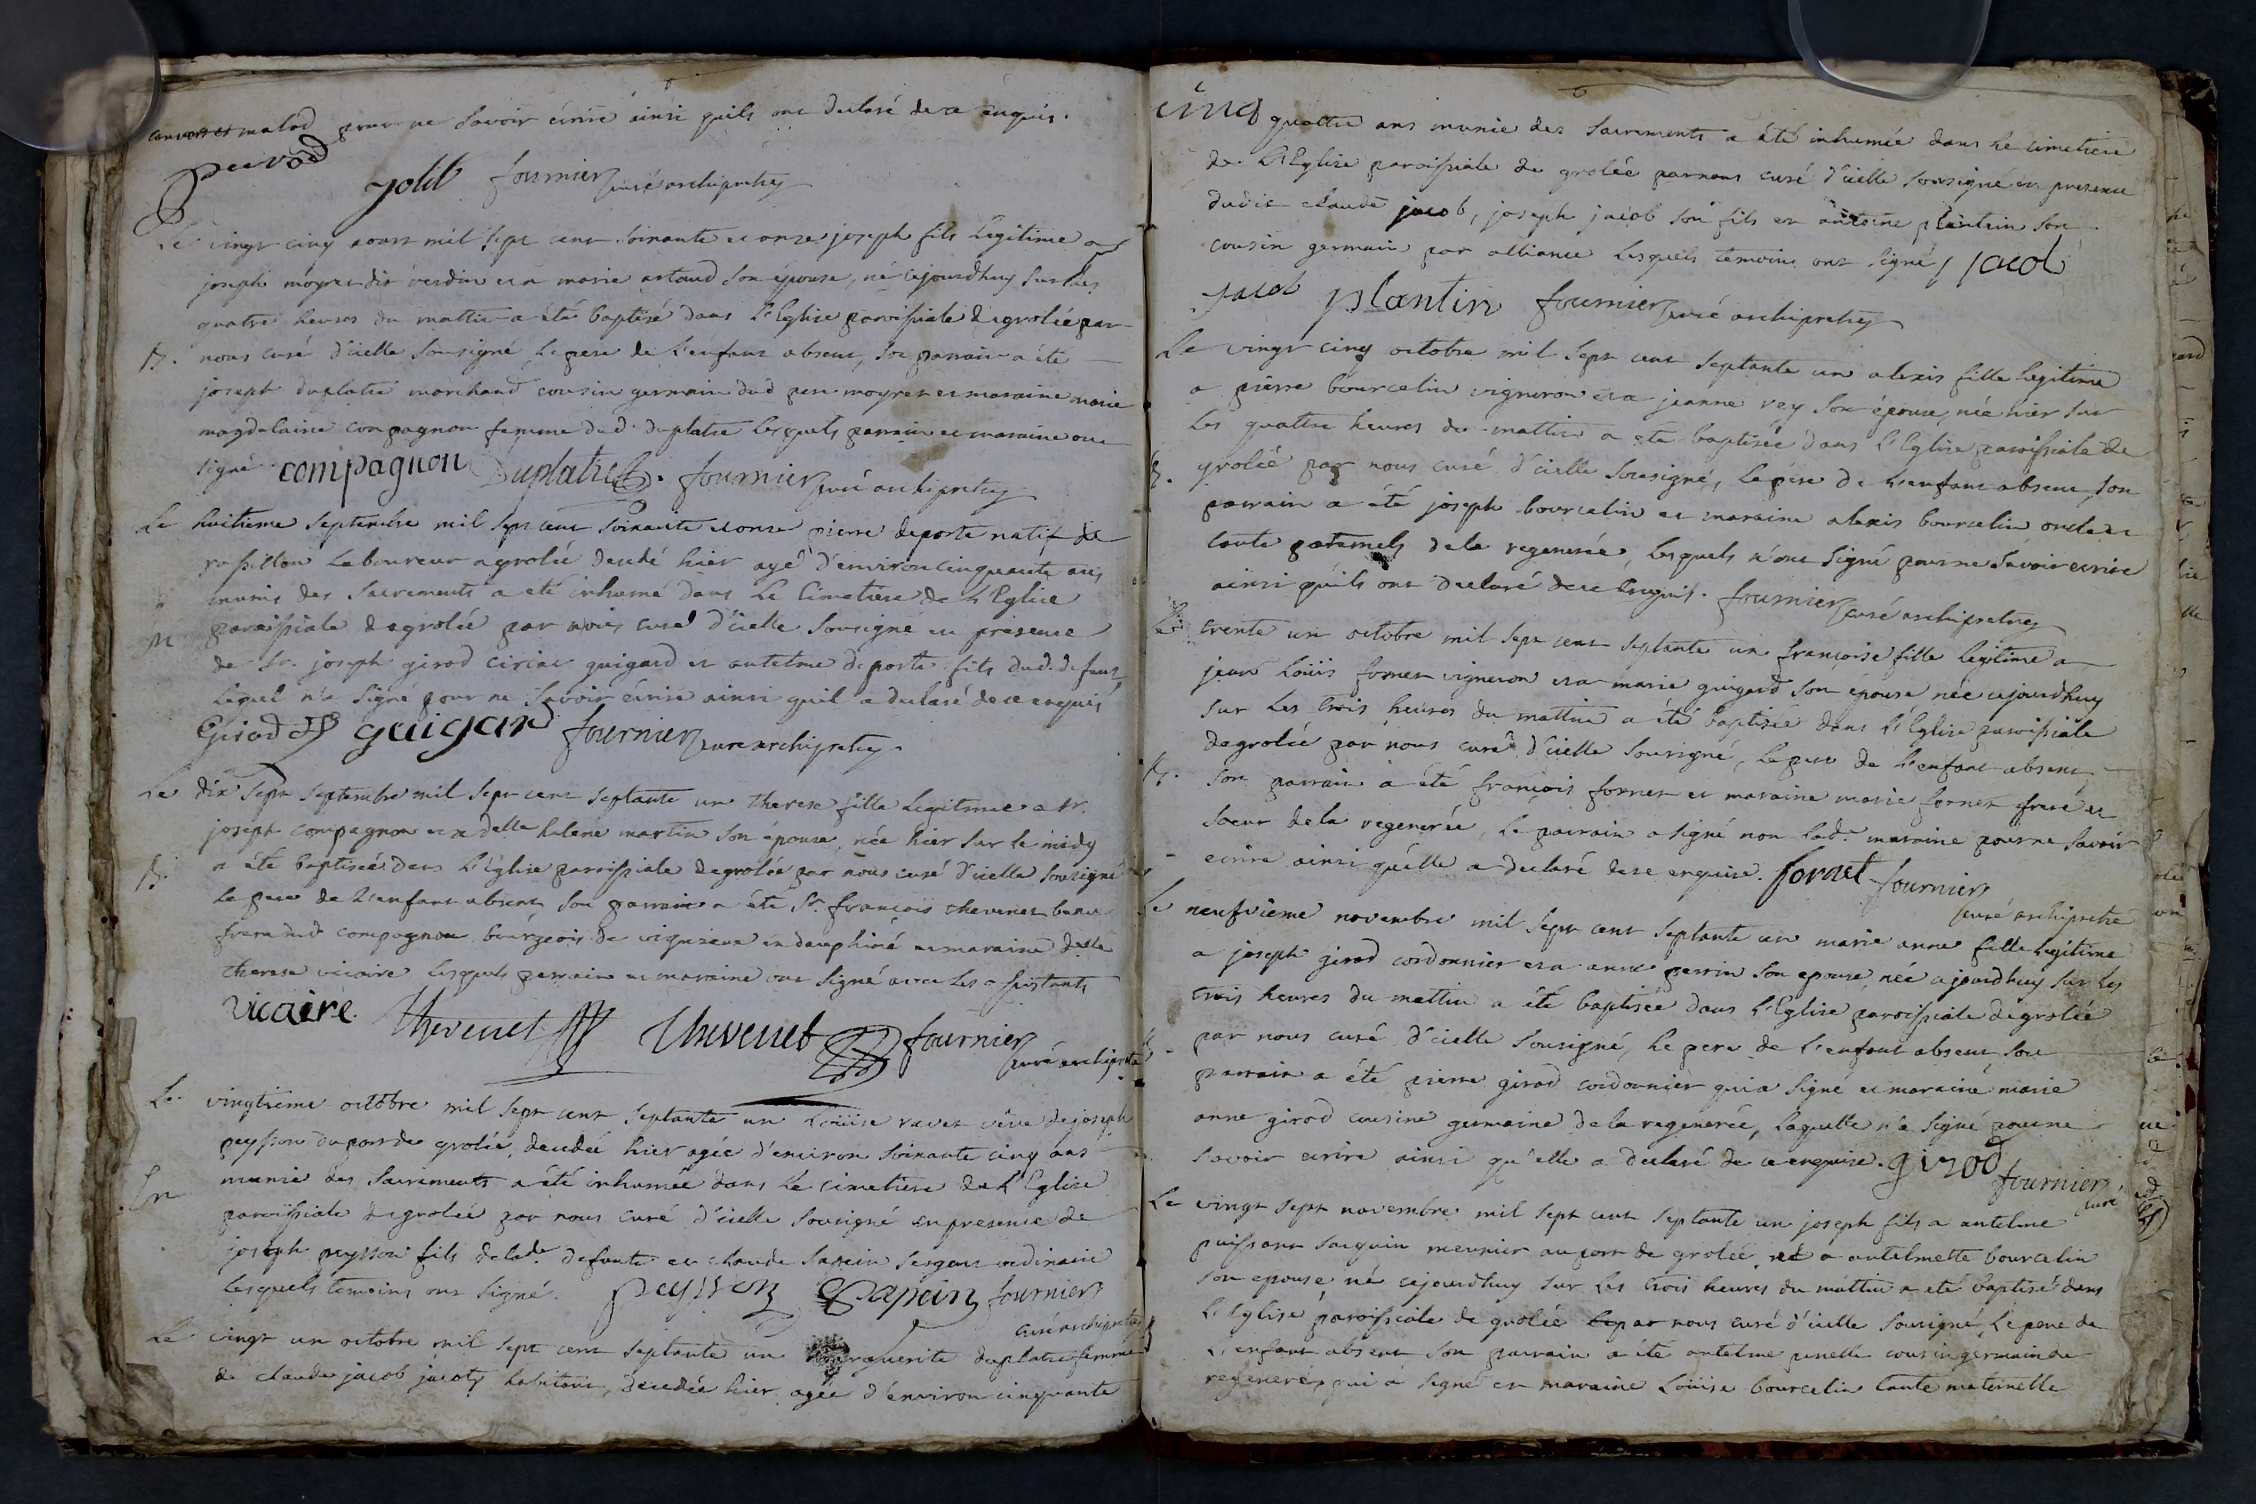 malod pour ne savoir écrire ainsi quils ont declaré de ce enquis.
perrod
fournier curé archipretre
Le vingt cinq aoust mil sept cent soixante et onze joseph fils legitime a
joseph moyret dit verdin et a marie artaud son épouse, né cejourdhuy sur les
quatre heures du mattin a été baptisé dans l'Eglise paroissiale de grolée par
B. nous curé d'icelle sousigné, le pere de l'enfant absent, son parrain a été
joseph duplatre marchand cousin germain dud. pere moyret et maraine marie
magdelaine compagnon femme dud. duplatre lesquels parrain et maraine ont
signé. compagnon Duplatre. fournier curé archipretre
Le huitieme septembre mil sept cent soixante et onze pierre deporte natif de
rossillon laboureur a grolée decedé hier agé d'environ cinquante ans
munis des sacrements a été inhumé dans le cimetiere de l'Eglise
paroissiale de grolée par nous curé d'icelle sousigné en présence
de Sr. joseph girod ciriac guigard et antelme deporte fils dud. defunt
lequel n'a signé pour ne savoir écrire ainsi quil a declaré de ce enquis
Girod guigard fournier curé archipretre.
Le dix sept septembre mil sept cent septante un therese fille legitime a Sr.
joseph compagnon et a delle helene martin son épouse, née hier sur le midy
B. a été baptisée dans l'Eglise paroissiale de grolée par nous curé d'icelle sousigné
le pere de l'enfant absent, son parrain a été Sr. françois thevenet beau
frere dud. compagnon bourgeois de en dauphiné et maraine delle
therese vicaire lesquels parrain et maraine ont signé avec les assistants
vicaire. Thevenet Thevenet fournier
curé archipretre
Le vingtieme octobre mil sept cent septante un Loüise ravet véve de joseph
peysson du port de grolée, decedée hier agée d'environ soixante cinq ans
munie des sacrements a été inhumée dans le cimetiere de l'Eglise
paroissiale de grolée par nous curé d'icelle sousigné en presence de
joseph peysson fils de lade. defunte et claude sapein sergent ordinaire
lesquels temoins ont signé. peysson Sapein fournier
curé archipretre
Le vingt un octobre mil sept cent septante un marguerite duplatre femme
de claude jacob habitant, decedée hier agée d'environ cinquante
cinq quattre ans munie des sacrements a été inhumée dans le cimetiere
de l'Eglise paroissiale de grolée par nous curé d'icelle sousigné en presence
dudit claude jacob, joseph jacob son fils et antoine plantin son
cousin germain par alliance lesquels temoins ont signé, jacob
jacob plantin fournier curé archipretre
Le vingt cinq octobre mil sept cent septante un alexis fille legitime
a pierre bourcelin vigneron et a jeanne rey son épouse, née hier sur
les quattre heures du mattin a été baptisée dans l'Eglise paroissiale de
B. grolée par nous curé d'icelle sousigné, le pere de l'enfant absent, son
parrain a été joseph bourcelin et maraine alexis bourcelin oncle et
tante paternels de la regenerée, lesquels n'ont signé pour ne savoir écrire
ainsi qu'ils ont declaré de ce enquis. fournier curé archipretre
Le trente un octobre mil sept cent septante un françoise fille legitime a
jean Loüis fornet vigneron et a marie guigard son épouse née cejourdhuy
sur les trois heures du mattin a été baptisée dans l'Eglise paroissiale
de grolée par nous curé d'icelle sousigné, le pere de l'enfant absent
B. son parrain a été françois fornet et maraine marie fornet frere et
soeur de la regenerée, le parrain a signé non lade. maraine pour ne savoir
ecrire ainsi qu'elle a declaré de ce enquise. fornet fournier
curé archipretre
Le neufvieme novembre mil sept cent septante un marie anne fille legitime
a joseph girod cordonnier et a anne perrin son epouse, née cejourdhuy sur les
trois heures du mattin a été baptisée dans l'Eglise paroissiale de grolée
par nous curé d'icelle sousigné, le pere de l'enfant absent son
parrain a été pierre girod cordonnier qui a signé et maraine marie
anne girod cousine germaine de la regenerée, laquelle n'a signé pour ne
savoir ecrire ainsi qu'elle a declaré de ce enquise. girod fournier
curé
Le vingt sept novembre mil sept cent septante un joseph fils a antelme
puissant meunier au port de grolée et a antelmette bourcelin
son epouse né cejourdhuy sur les trois heures du mattin a été baptisé dans
l'Eglise paroissiale de grolée par nous curé d'icelle sousigné, le pere de
l'enfant absent son parrain a été antelme cousin germain du
regeneré, qui a signé et maraine Loüise bourcelin tante maternelle